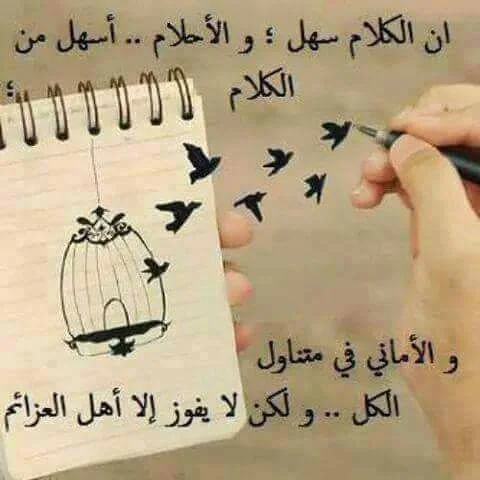 ان الكلام سهل ؛ و الأحلام .. أسهل من
الكلام ؛
و الأماني في متناول
الكل .. و لكن لا يفوز إلا أهل العزائم